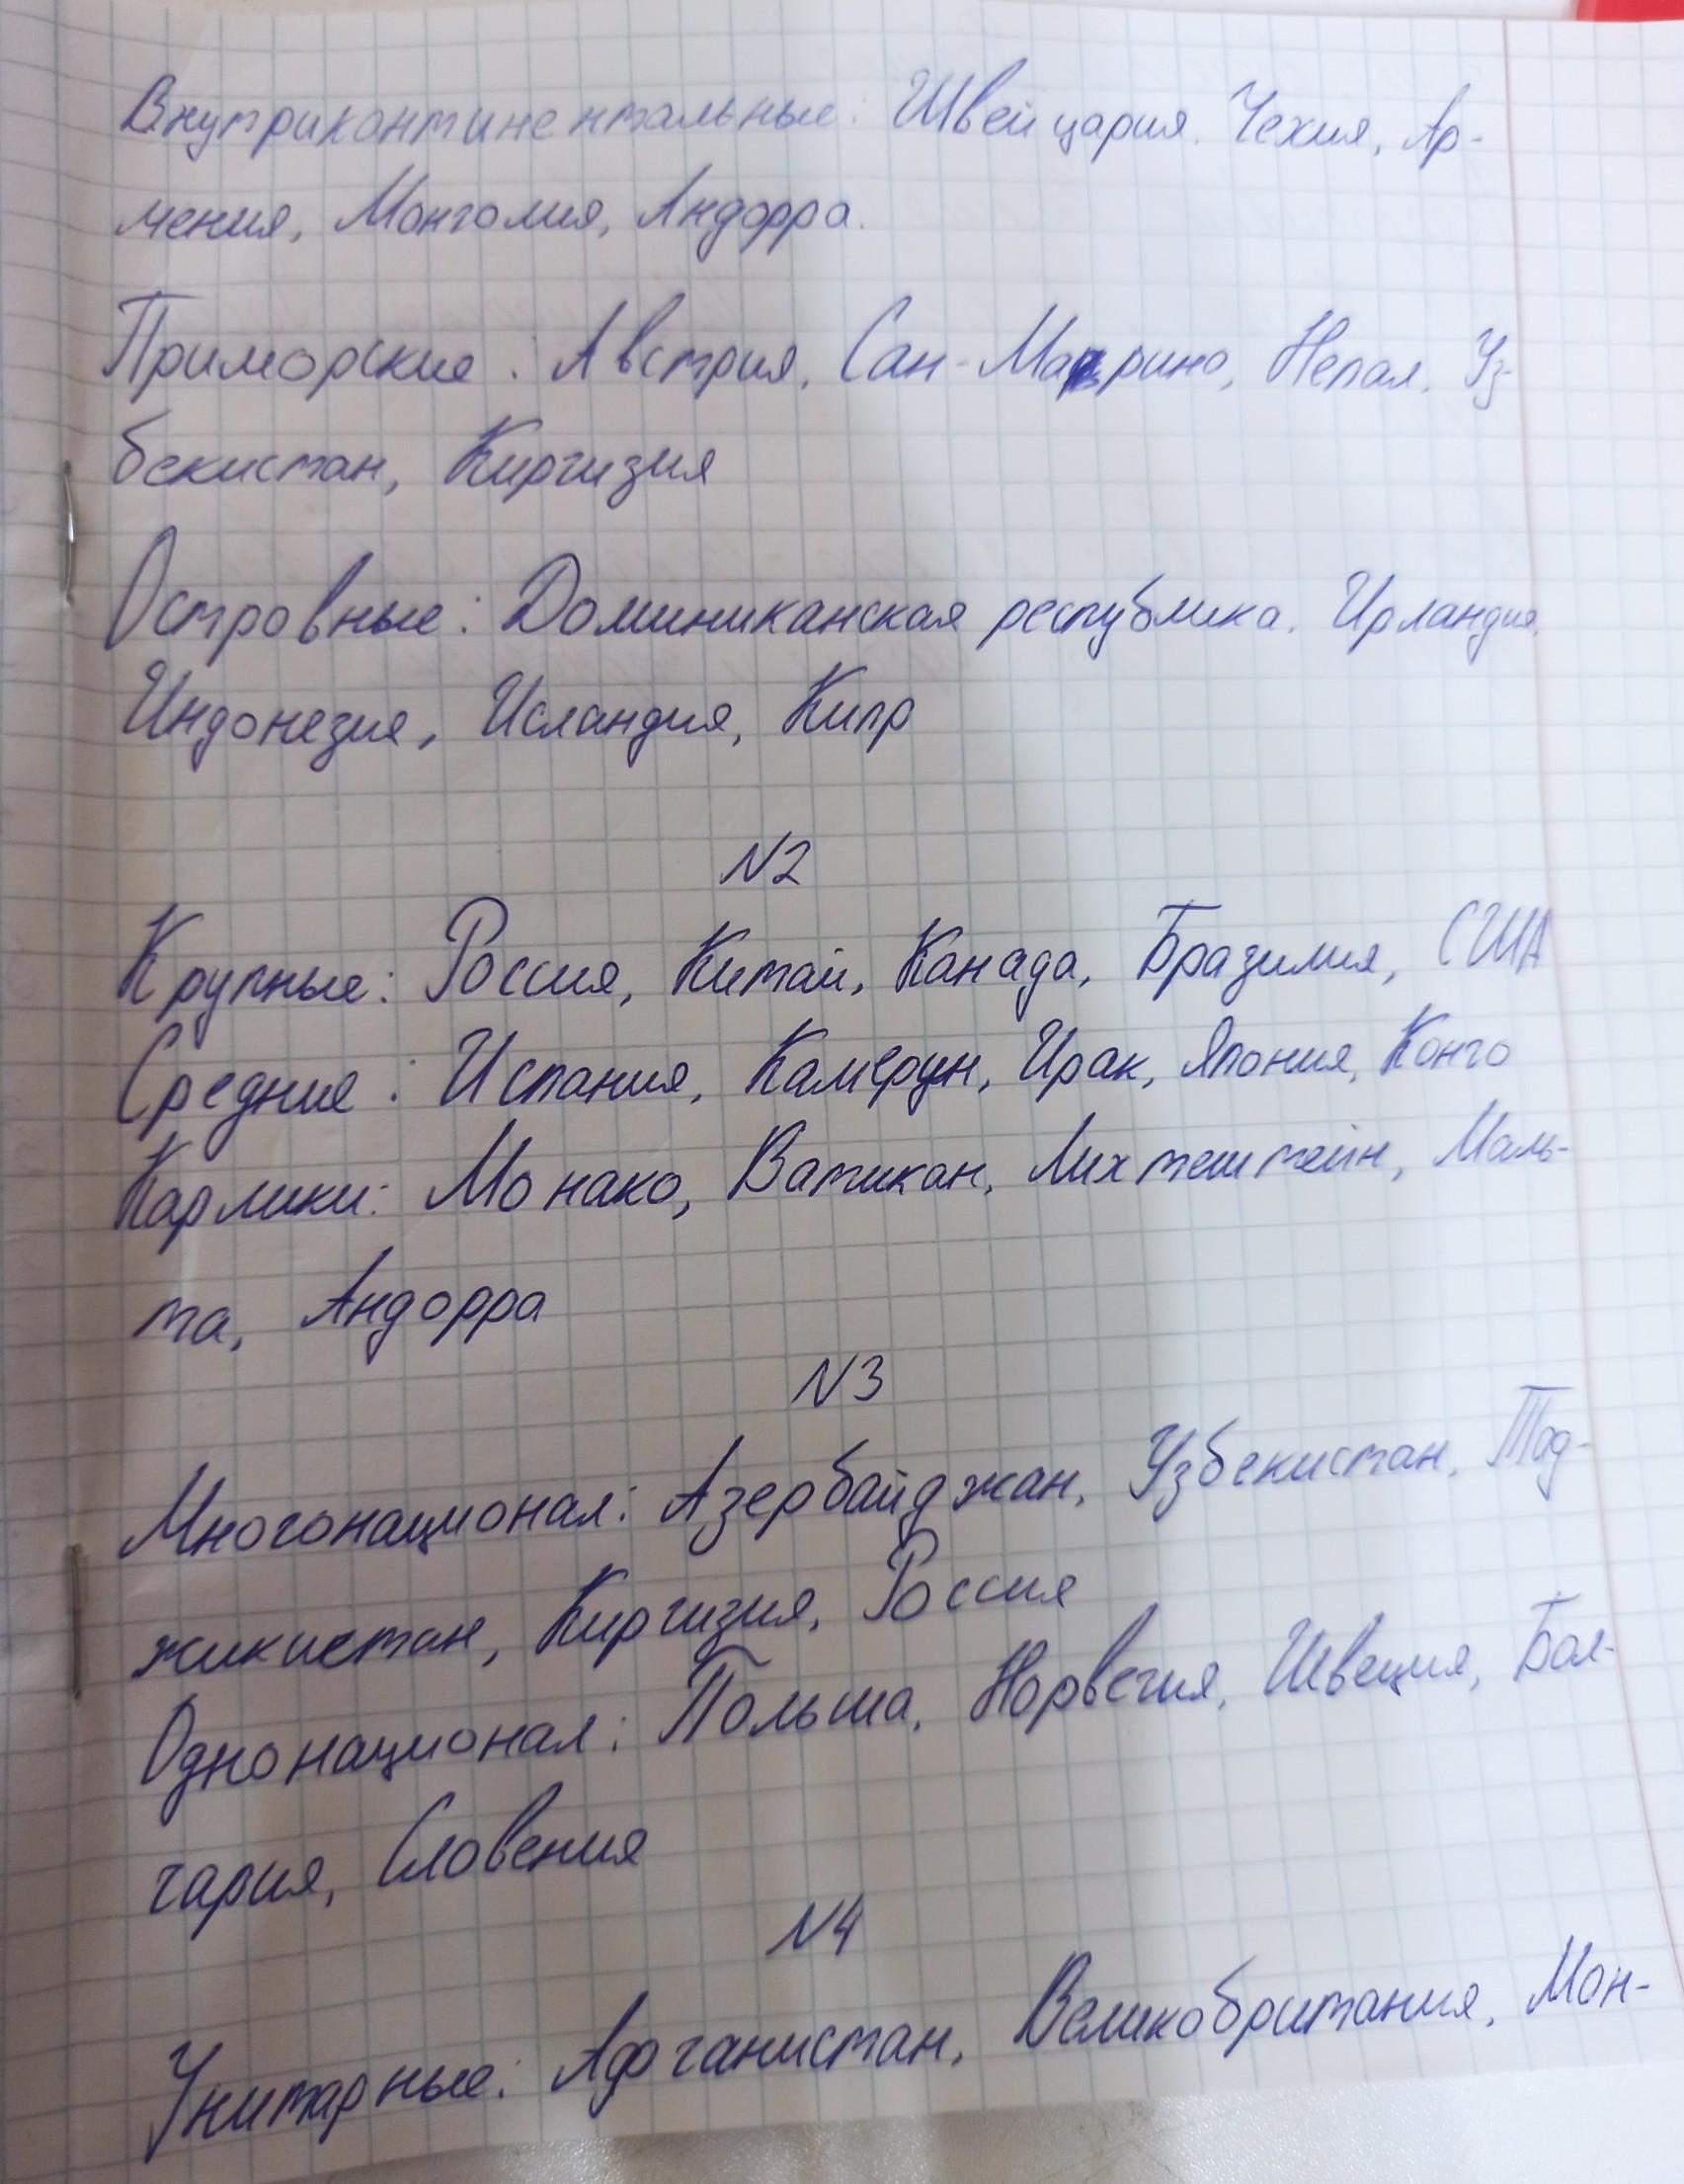 Внутриконтинентальные: Швейцария. Чехия, Ар-
мения, Монголия, Андорра.
Приморские: Австрия, Сан-Марино, Непал, Уз-
бекистан, Киргизия
Островные: Доминиканская республика. Ирландия,
Индонезия, Исландия, Кипр
N2
Крупные: Россия, Китай, Канада, Бразилия, США
Средние: Испания, Камерун, Ирак, Япония, Конго
Карлики: Монако, Ватикан, Лихтештейн, Маль-
та, Андорра
N3
Многонационал: Азербайджан, Узбекистан, Тад-
жикистан, Киргизия, Россия
Однонационал: Польша, Норвегия, Швеция, Бол-
гария, Словения
N4
Унитарные: Афганистан, Великобритания, Мон-